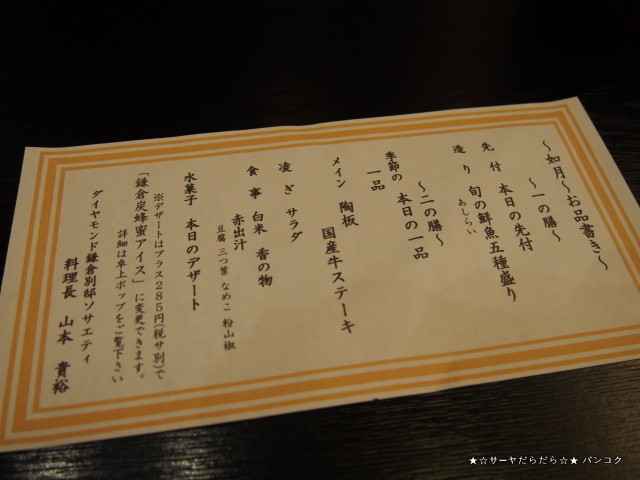 ～如月～お品書き～
～一の膳～
先付 本日の先付
造り 旬の鮮魚五種盛り
あしらい
～二の膳～
季節の一品 本日の一品
メイン 陶板 国産牛ステーキ
凌ぎ サラダ
食事 白米 香の物
赤出汁
豆腐 三つ葉 なめこ 粉山椒
水菓子 本日のデザート
※デザートはプラス285円(税サ別)で
「鎌倉炭蜂蜜アイス」に変更できます。
詳細は卓上ポップをご覧下さい
ダイヤモンド鎌倉別邸ソサエティ
料理長 山本 貴裕
★☆サーヤだらだら☆★ バンコク